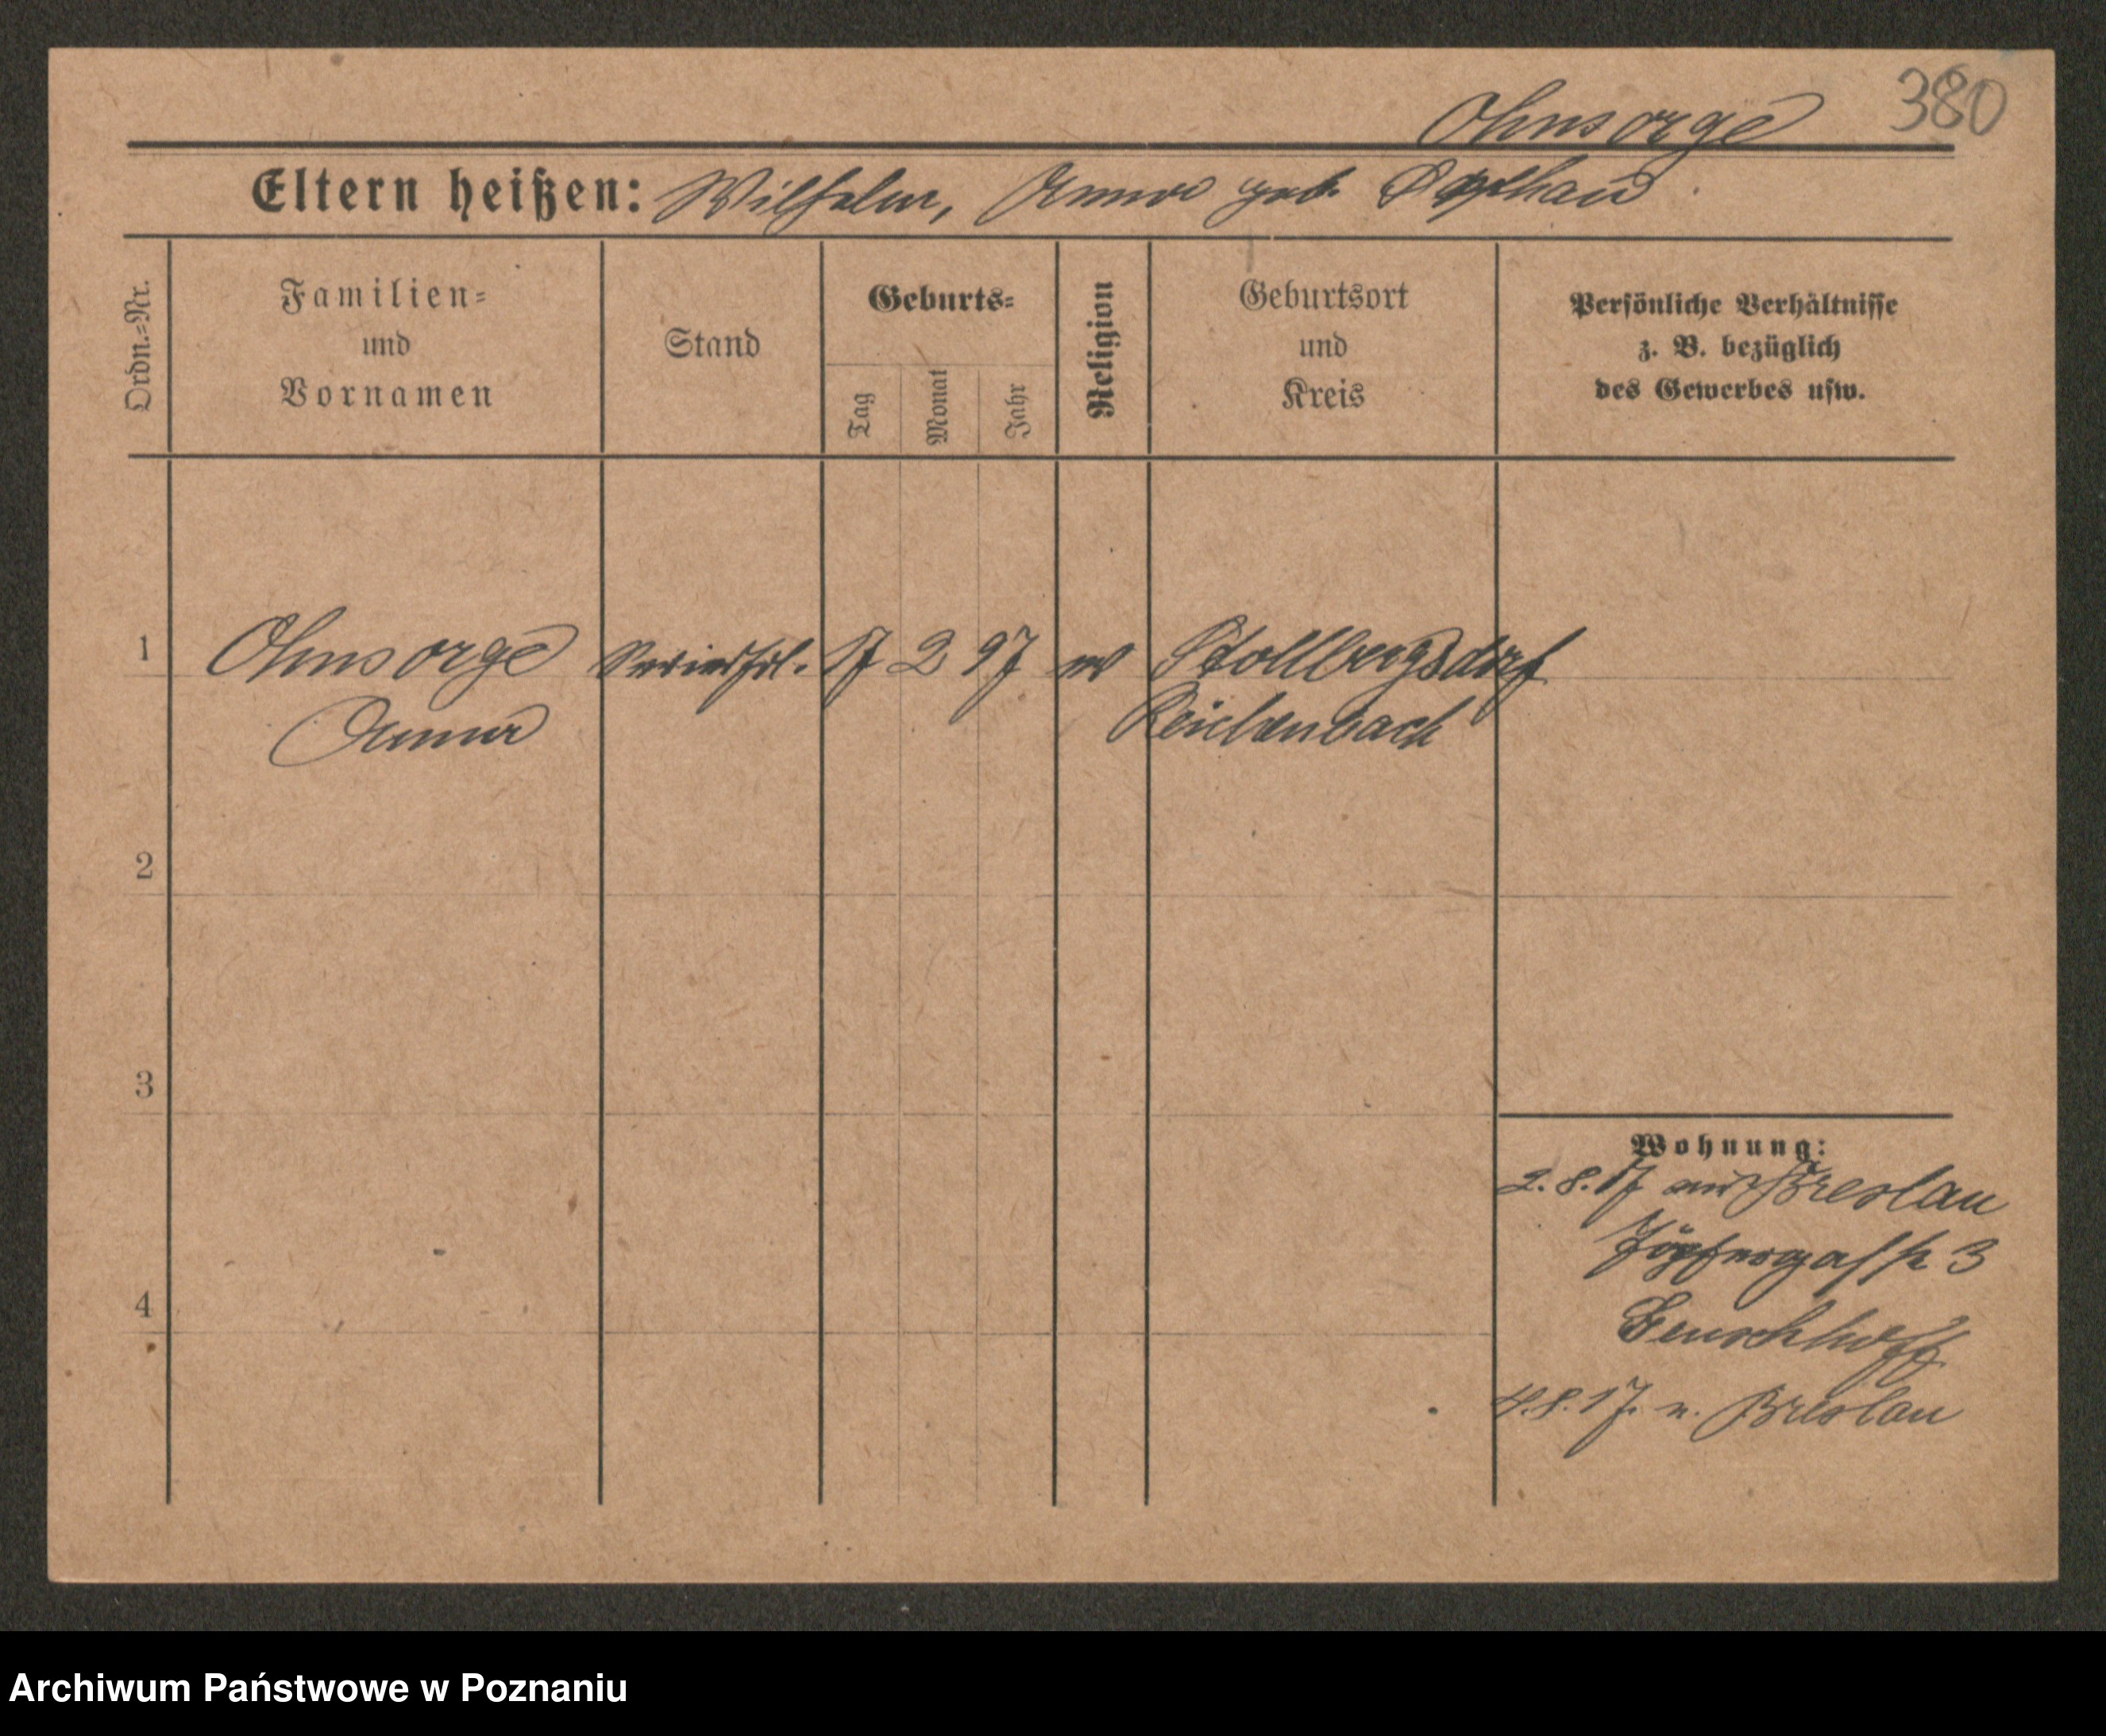 380
Ohnsorge
Eltern heißen: Wilhelm, Anna geb.
Ordn.=Nr.
Familien=
und
Vornamen
Stand
Geburts=
Tag
Monat
Jahr
Religion
Geburtsort
und
Kreis
Persönliche Verhältnisse
z. B. bezüglich
des Gewerbes usw.
1 Ohnsorge 17 2 97 ev Stollbergsdorf
Anna Reichenbach
2
3
4
Wohnung:
2.8.17 aus Breslau
Töpfergasse 3
4.8.17. n. Breslau
Archiwum Państwowe w Poznaniu